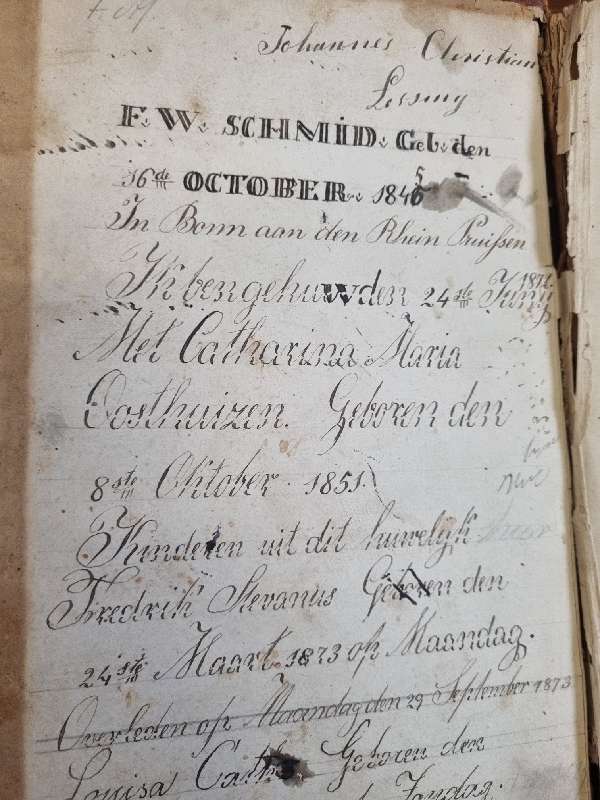 Johannes Christian
Lessing
F. W. SCHMID. Geb. den
16de OCTOBER. 1845
In Bonn aan den Rhein Pruissen
Ik ben gehuwd den 24ste Juny 1872
Met Catharina Maria
Oosthuizen. Geboren den
8ste Oktober 1851.
Kinderen uit dit huwelyk
Fredrik Stevanus Geboren den
24ste Maart 1873 op Maandag.
Overleden op Maandag den 29 September 1873
Louisa Cath. Geboren den
Zondag.